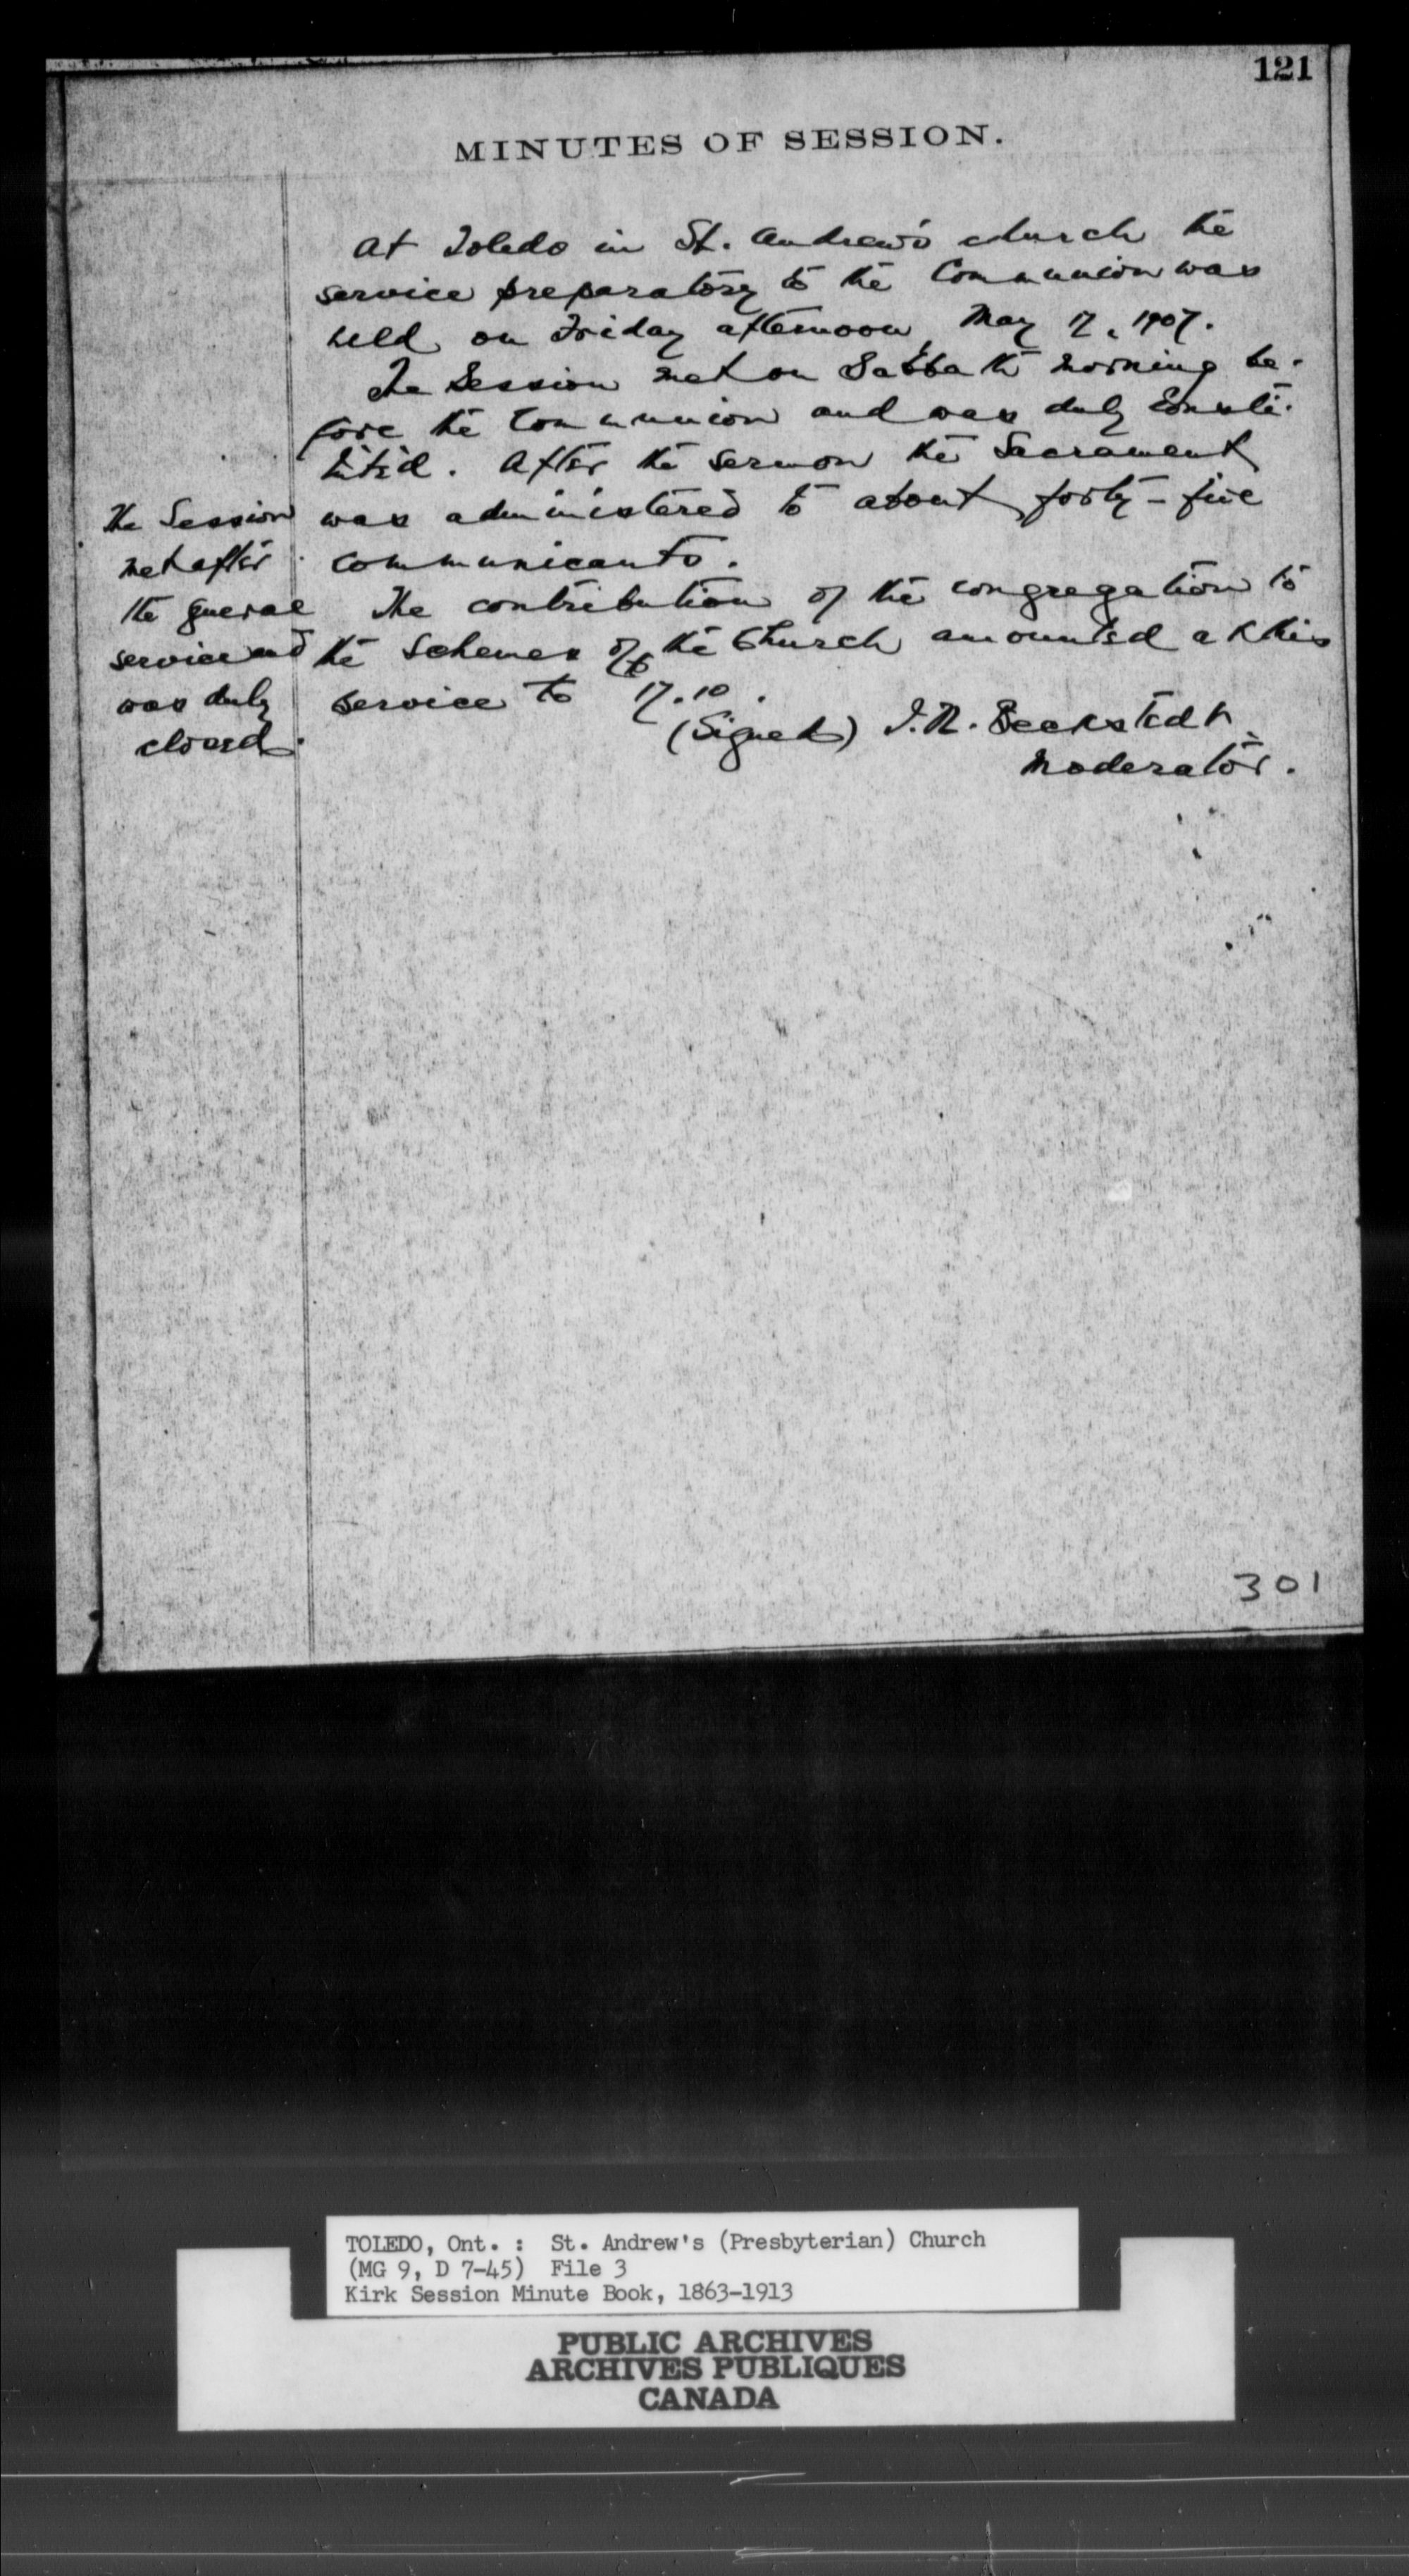 121
MINUTES OF SESSION.
At Toledo in St. Andrew's church the
service preparatory to the Communion was
held on Friday afternoon, May 17, 1907.
The Session met on Sabbath morning be-
fore the Communion and was duly consti-
tuted. After the sermon the Sacrament
was administered to about forty-five
communicants.
The contribution of the congregation to
the Schemes of the Church amounted at this
service to $17.10.
(Signed) I.N. Beckstedt,
Moderator.
The Session
met after
the general
service and
was duly
closed.
301
TOLEDO, Ont. : St. Andrew's (Presbyterian) Church
(MG 9, D 7-45) File 3
Kirk Session Minute Book, 1863-1913
PUBLIC ARCHIVES
ARCHIVES PUBLIQUES
CANADA